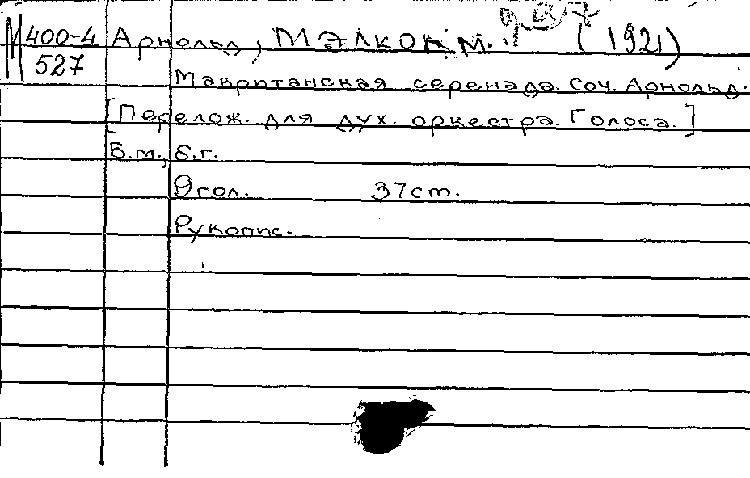 М 400-4
527
Арнольд, Мэлколм. (1921)
Мавританская серенада. Соч. Арнольд.
[Перелож. для дух. оркестра. Голоса.]
Б.м., б.г.
37см.
Рукопис.